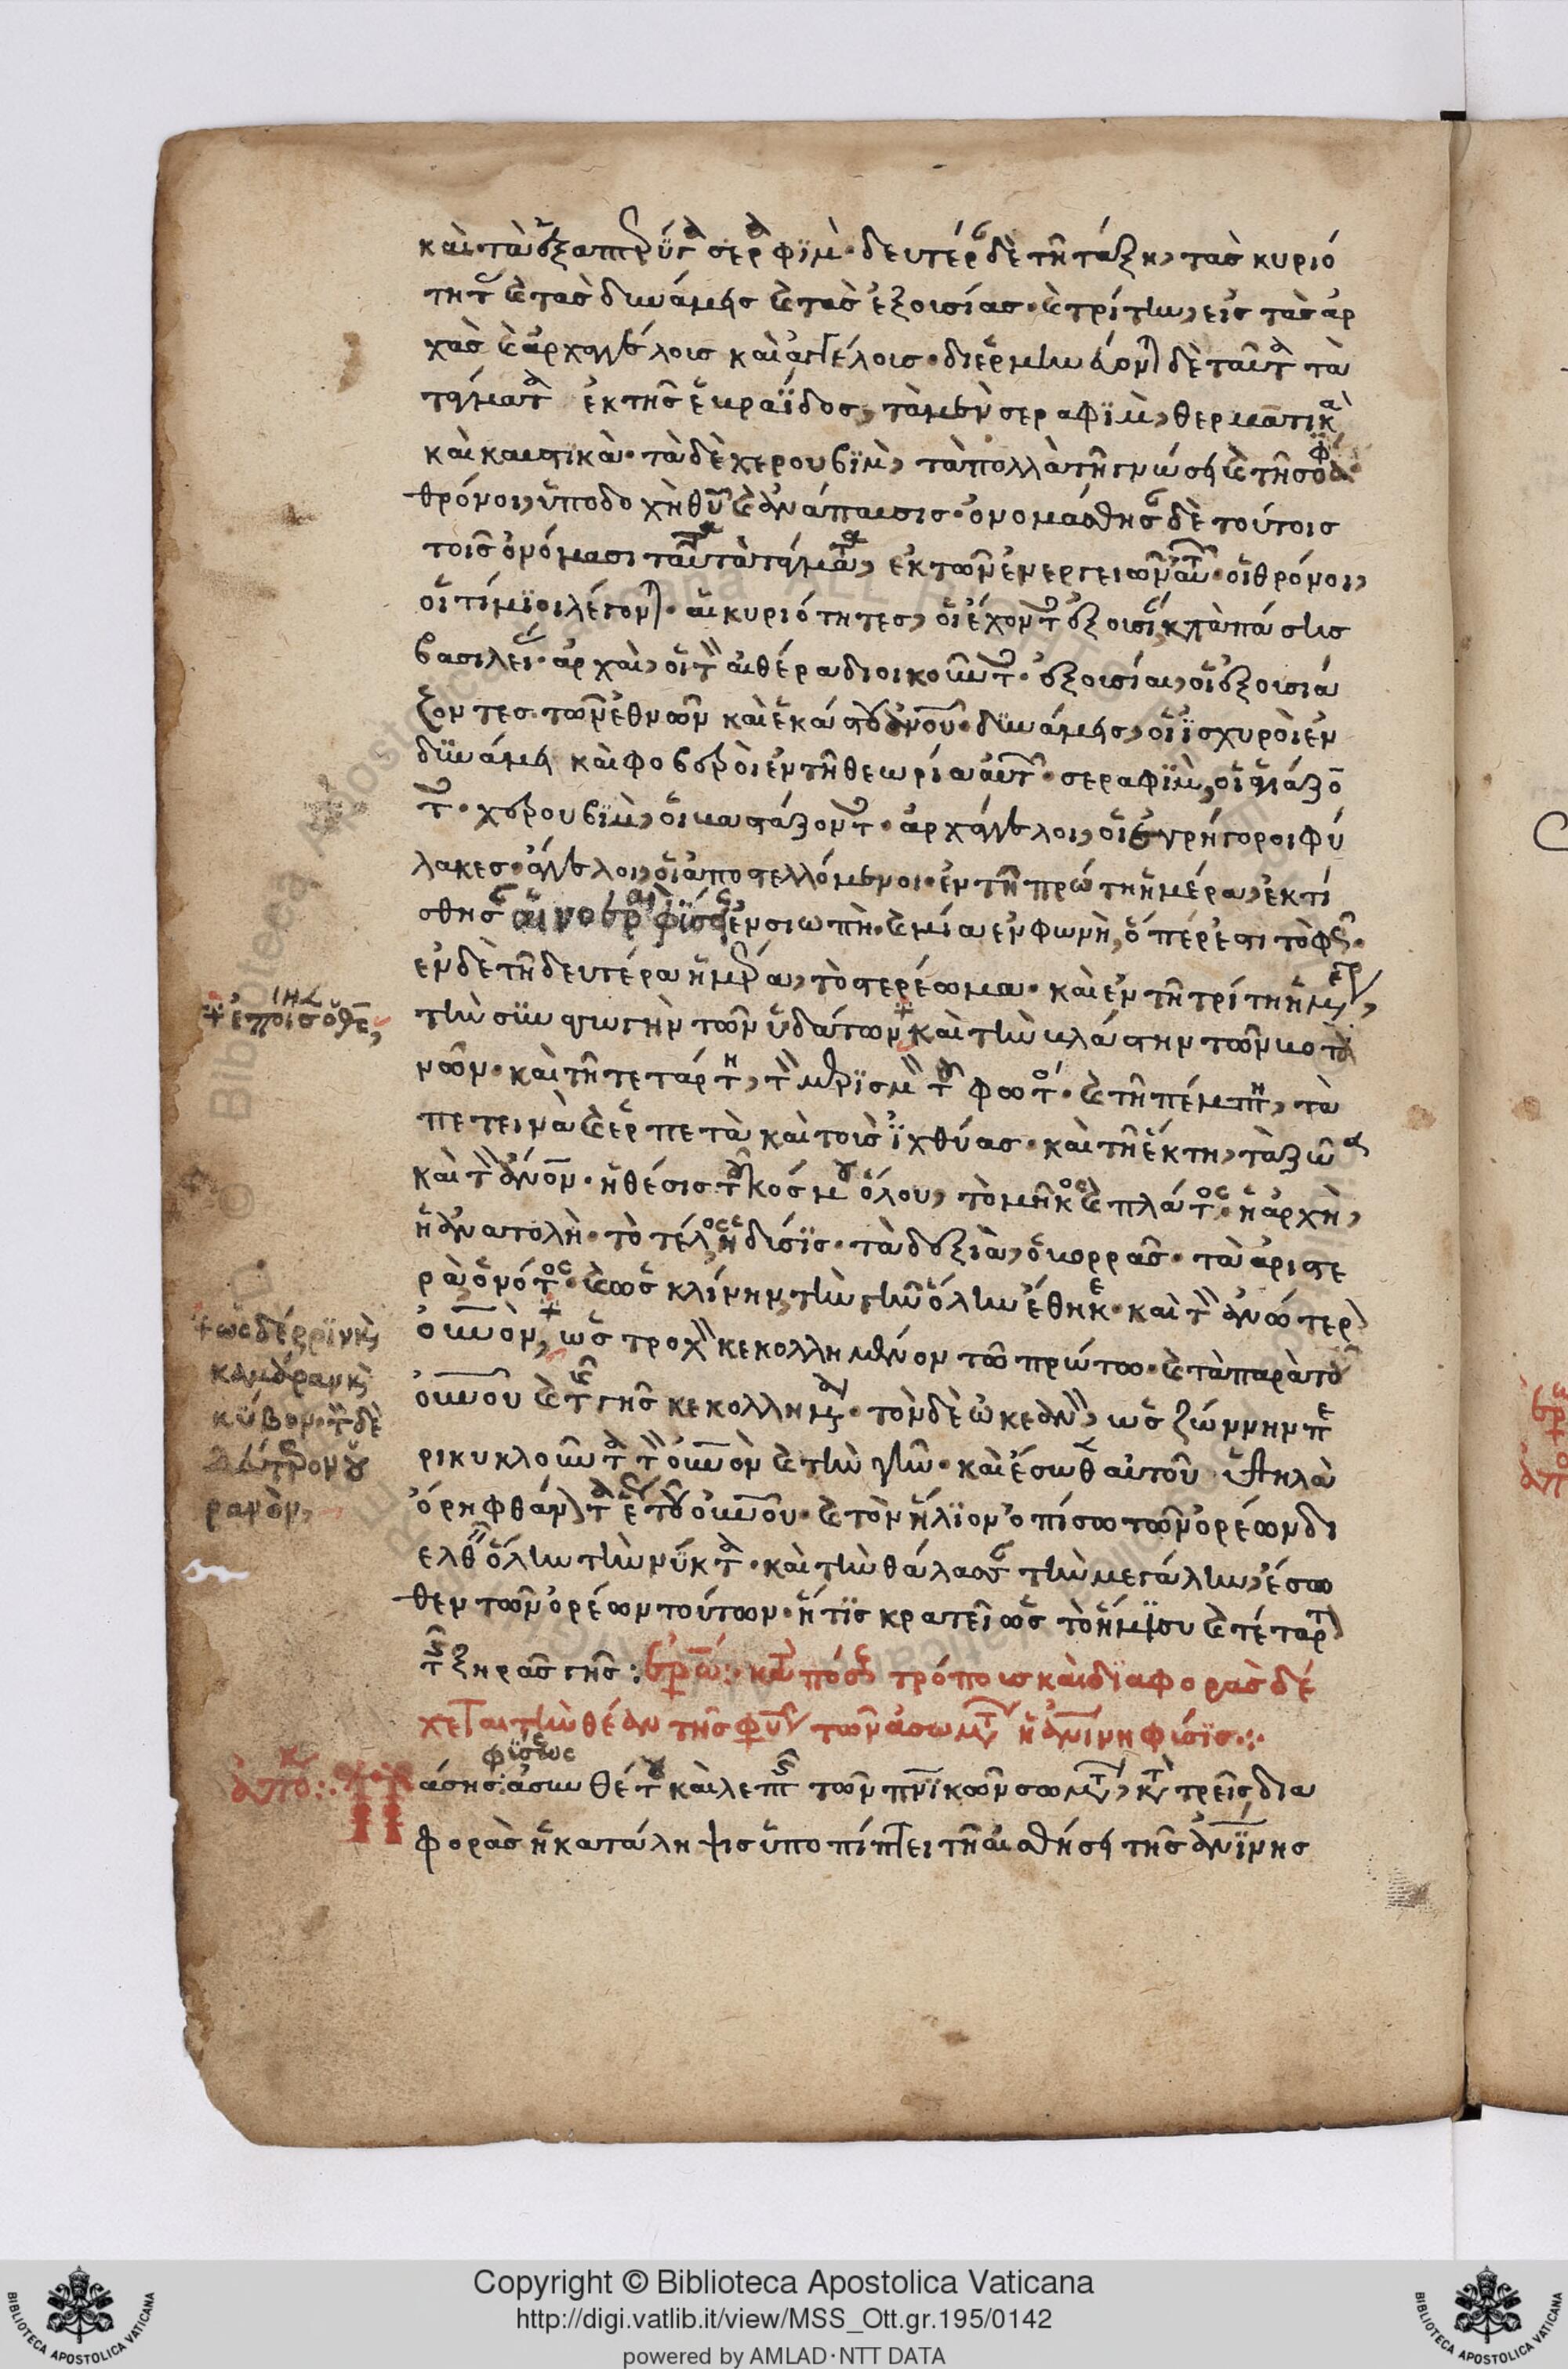 καὶ τὰ ἑξαπτέρυγα σεραφὶμ· δευτέρα δὲ τῇ τάξει, τὰς κυριό
τητας καὶ τὰς δυνάμεις καὶ τὰς ἐξουσίας· καὶ τρίτην, εἰς τὰς ἀρ
χὰς καὶ ἀρχαγγέλους καὶ ἀγγέλους· διερμηνεύονται δὲ ταῦτα τὰ
τάγματα ἐκ τῆς ἑβραΐδος, τὰ μὲν σεραφὶμ, θερμαντικὰ
καὶ καυστικὰ· τὰ δὲ χερουβὶμ, τὰ πολλὰ τῇ γνώσει καὶ τῇ σοφία·
θρόνοι, ὑποδοχὴ θεοῦ καὶ ἀνάπαυσις· ὀνομάσθησαν δὲ τούτοις
τοῖς ὀνόμασι ταῦτα τὰ τάγματα, ἐκ τῶν ἐνεργειῶν αὐτῶν· οἱ θρόνοι,
οἱ τίμιοι λέγονται· αἱ κυριότητες, οἱ ἔχοντες ἐξουσίαν κατὰ πάσης
βασιλείας· ἀρχαὶ, οἱ τὸν αἰθέρα διοικοῦντες· ἐξουσίαι, οἱ ἐξουσιά
ζοντες τῶν ἐθνῶν καὶ ἑκάστου ἀνθρώπου· δυνάμεις, οἱ ἰσχυροὶ ἐν
δυνάμει καὶ φοβεροὶ ἐν τῇ θεωρία αὐτῶν· σεραφὶμ, οἱ ἁγιάζον
τες· χερουβὶμ, οἱ βαστάζοντες· ἀρχάγγελοι, οἱ ἐγρήγοροι φύ
λακες· ἄγγελοι, οἱ ἀποστελλόμενοι· ἐν τῇ πρώτη ἡμέρα, ἐκτί
σθησαν αἱ νοεραὶ φύσεις ἐν σιωπῇ· καὶ μία ἐν φωνῇ, ὅπέρ ἐστι τὸ φῶς·
ἐν δὲ τῇ δευτέρα ἡμέρα, τὸ στερέωμα· καὶ ἐν τῇ τρίτη ἡμέρα,
τὴν συναγωγὴν τῶν ὑδάτων, καὶ τὴν βλάστην τῶν βοτα
νῶν· καὶ τῇ τετάρτη, τὸν μερισμὸν τοῦ φωτός· καὶ τῇ πέμπτη, τὰ
πετεινὰ καὶ ἑρπετὰ καὶ τοὺς ἰχθύας· καὶ τῇ ἕκτη, τὰ ζῶα
καὶ τὸν ἄνθρωπον· ἡ θέσις τοῦ κόσμου ὅλου, τὸ μῆκος καὶ πλάτος· ἡ ἀρχὴ,
ἡ ἀνατολὴ· τὸ τέλος, ἡ δύσις· τὰ δεξιὰ, ὁ βορρᾶς· τὰ ἀριστε
ρὰ, ὁ νότος· καὶ ὡς κλίνην τὴν γῆν ὅλην ἔθηκε· καὶ τὸν ἀνώτερον
οὐρανὸν, ὡς τροχὸν κεκολλημένον τῷ πρώτῳ· καὶ τὰ παρὰ τοῦ
οὐρανοῦ καὶ τῆς γῆς κεκολλημένα· τὸν δὲ ὠκεανὸν, ὡς ζώννην πε
ρικυκλοῦντα τὸν οὐρανὸν καὶ τὴν γῆν· καὶ ἔσωθεν αὐτοῦ ὑψηλὰ
ὄρη φθάνοντα ἕως τοῦ οὐρανοῦ· καὶ τὸν ἥλιον ὀπίσω τῶν ὀρέων δι
ελθεῖν ὅλην τὴν νύκτα· καὶ τὴν θάλασσαν τὴν μεγάλην, ἔσω
θεν τῶν ὀρέων τούτων· ἥτις κρατεῖ ὡς τὸ ἥμισυ καὶ τέταρτον
τῆς ξηρᾶς γῆς: ἐρώ: κατὰ πόσους τρόπους καὶ διαφορὰς δέ
χεται τὴν θέαν τῆς φύσεως τῶν ἀσωμάτων ἡ ἀνθρωπίνη φύσις:
ἀπό: Πάσης φύσεως ἀσυνθέτου καὶ λεπτῆς τῶν πνευματικῶν σωμάτων, κατὰ τρεῖς δια
φορὰς ἡ κατάληψις ὑποπίπτει τῇ αἰσθήσει τῆς ἀνθρωπίνης
+ ἐποίησεν ὁ θεός,
+ ὡς δέρριν καὶ
καμάραν καὶ
κύβον· τὸν δὲ
δεύτερον οὐ
ρανὸν,
Copyright © Biblioteca Apostolica Vaticana
http://digi.vatlib.it/view/MSS_Ott.gr.195/0142
powered by AMLAD·NTT DATA
BIBLIOTECA APOSTOLICA VATICANA
BIBLIOTECA APOSTOLICA VATICANA